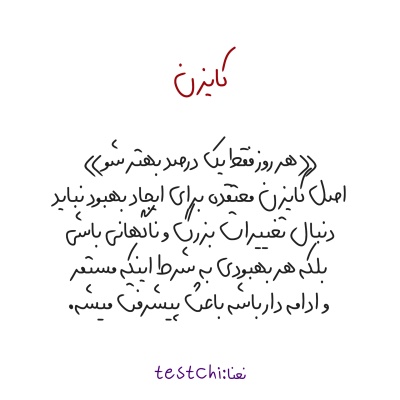 کایزن
«هر روز فقط یک درصد بهتر شو»
اصل کایزن معتقده برای ایجاد بهبود نباید
دنبال تغییرات بزرگ و ناگهانی باشی
بلکه هر بهبودی به شرط اینکه مستمر
و ادامه دار باشه باعث پیشرفت میشه.
نعنا:testchi